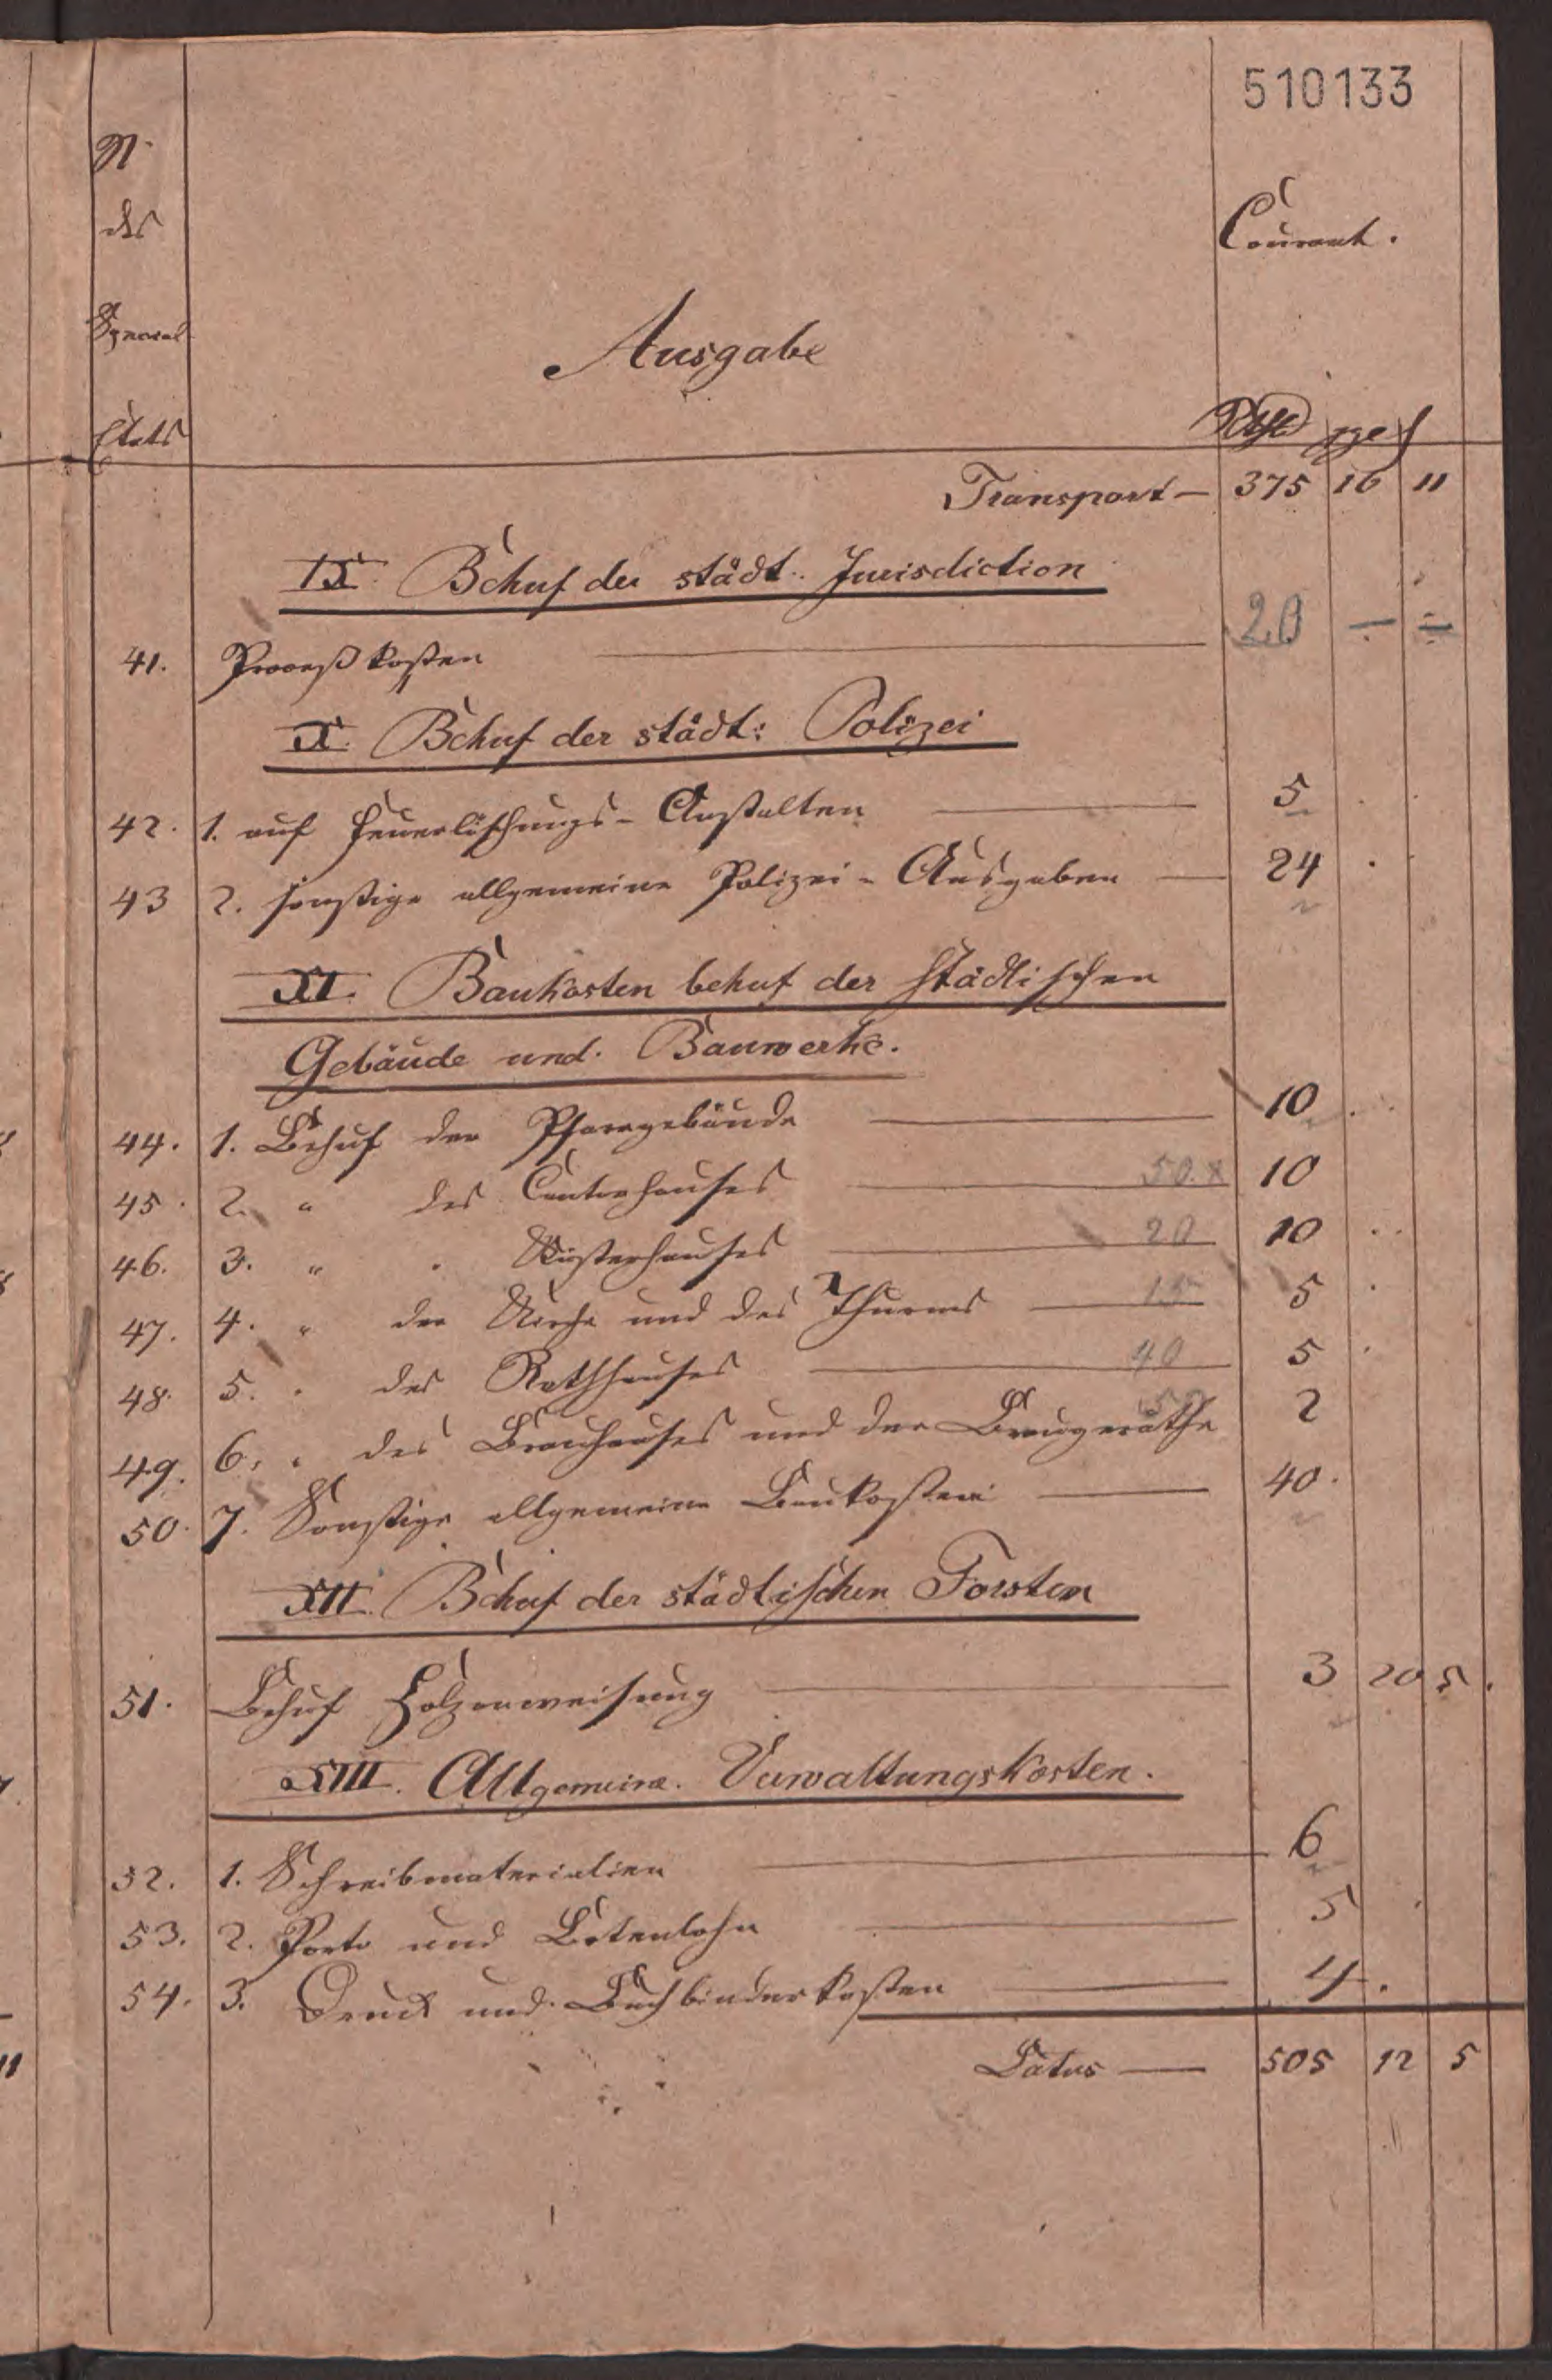 510133
N.
des
General
Etats
Courant.
Ausgabe
Rthlr ggr ₰
Transport — 375 16 11
IX. Behuf der städt. Jurisdiction
41. Proceßkosten 20 — =
X. Behuf der städt: Polizei
42. 1. auf Feuerlöschungs-Anstalten 5
43 2. sonstige allgemeine Polizei-Ausgaben — 24
XI. Baukosten behuf der städtischen
Gebäude und Bauwerke.
44. 1. Behuf der Pfarrgebäude 10
45. 2. " des Cantorhauses 50. x 10
46. 3. " " Küsterhauses 20 10
47. 4. " der Kirche und des Thurms 15 5
48. 5. " des Rathhauses 40 5
49. 6. " des Brauhauses und der Braugeräthe 2
50. 7. Sonstige allgemeine Baukosten 40.
XII. Behuf der städtischen Forsten
51. Behuf Holzanweisung 3 20 5.
XIII. Allgemeine Verwaltungskosten.
52. 1. Schreibmaterialien 6
53. 2. Porto und Botenlohn 5
54. 3. Druck und Buchbinderkosten 4.
Latus — 505 12 5